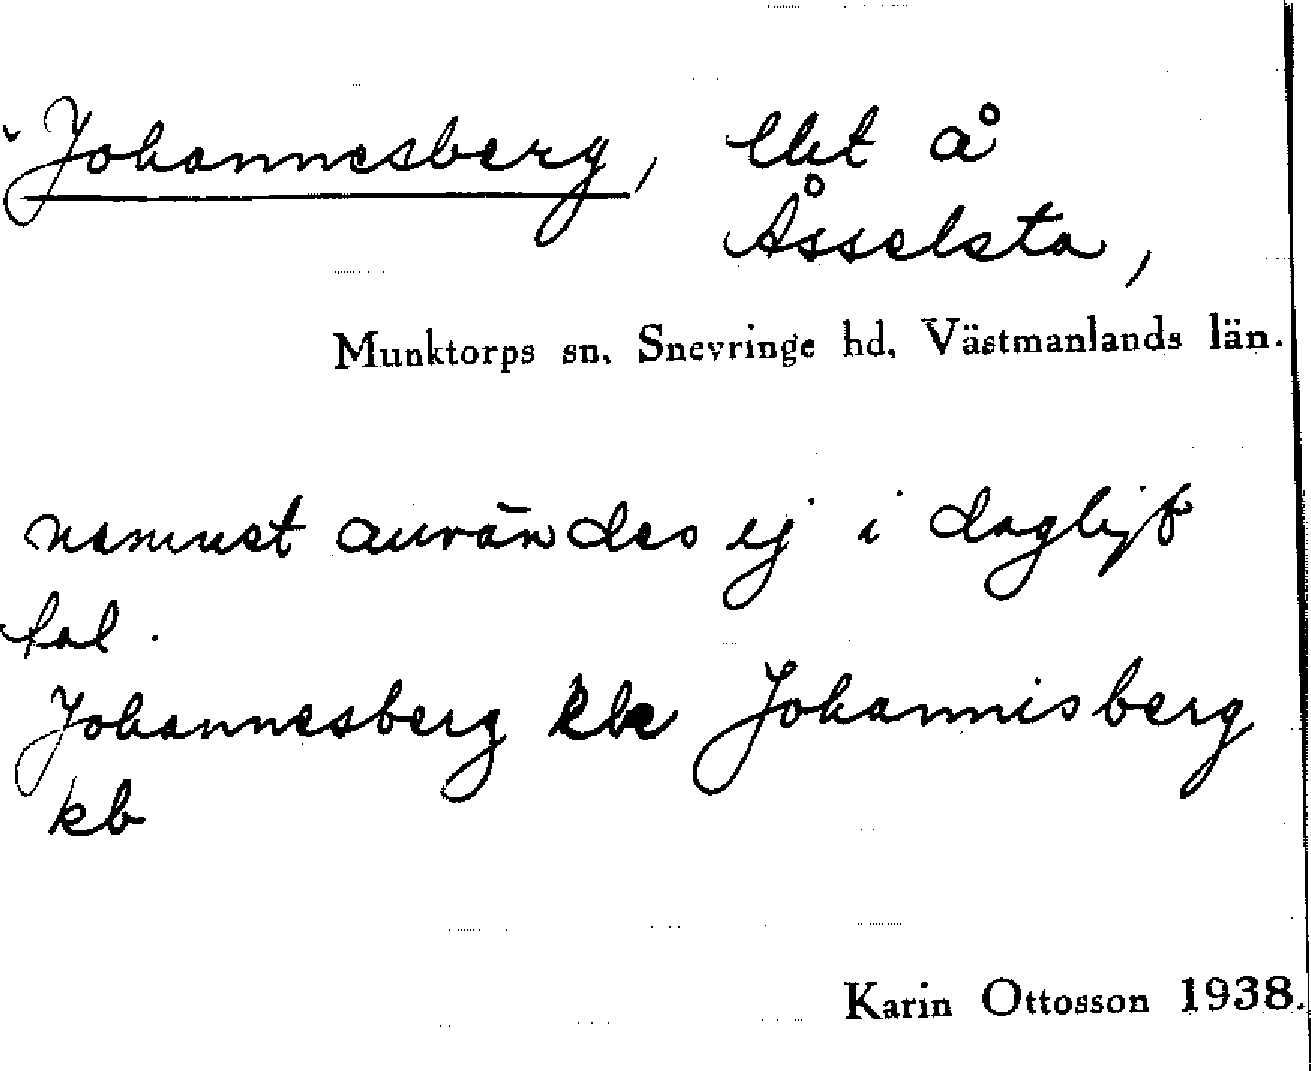 Johannesberg, lht å
Åsselsta,
Munktorps sn. Snevringe hd, Västmanlands län.
namnet användes ej i dagligt
tal.
Johannesberg Johannisberg
kb
Karin Ottosson 1938.